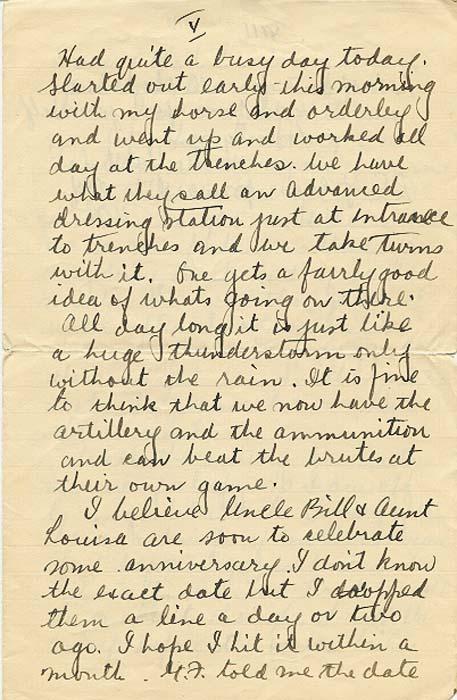 V
Had quite a busy day today.
Started out early this morning
with my horse and orderley
and went up and worked all
day at the trenches. We have
what they call an advanced
dressing station just at entrance
to trenches and we take turns
with it. One gets a fairly good
idea of whats going on there.
All day long it is just like
a huge thunderstorm only
without the rain. It is fine
to think that we now have the
artillery and the ammunition
and can beat the brutes at
their own game.
I believe Uncle Bill & Aunt
Louisa are soon to celebrate
some anniversary. I don't know
the exact date but I dropped
them a line a day or two
ago. I hope I hit it within a
month. told me the date